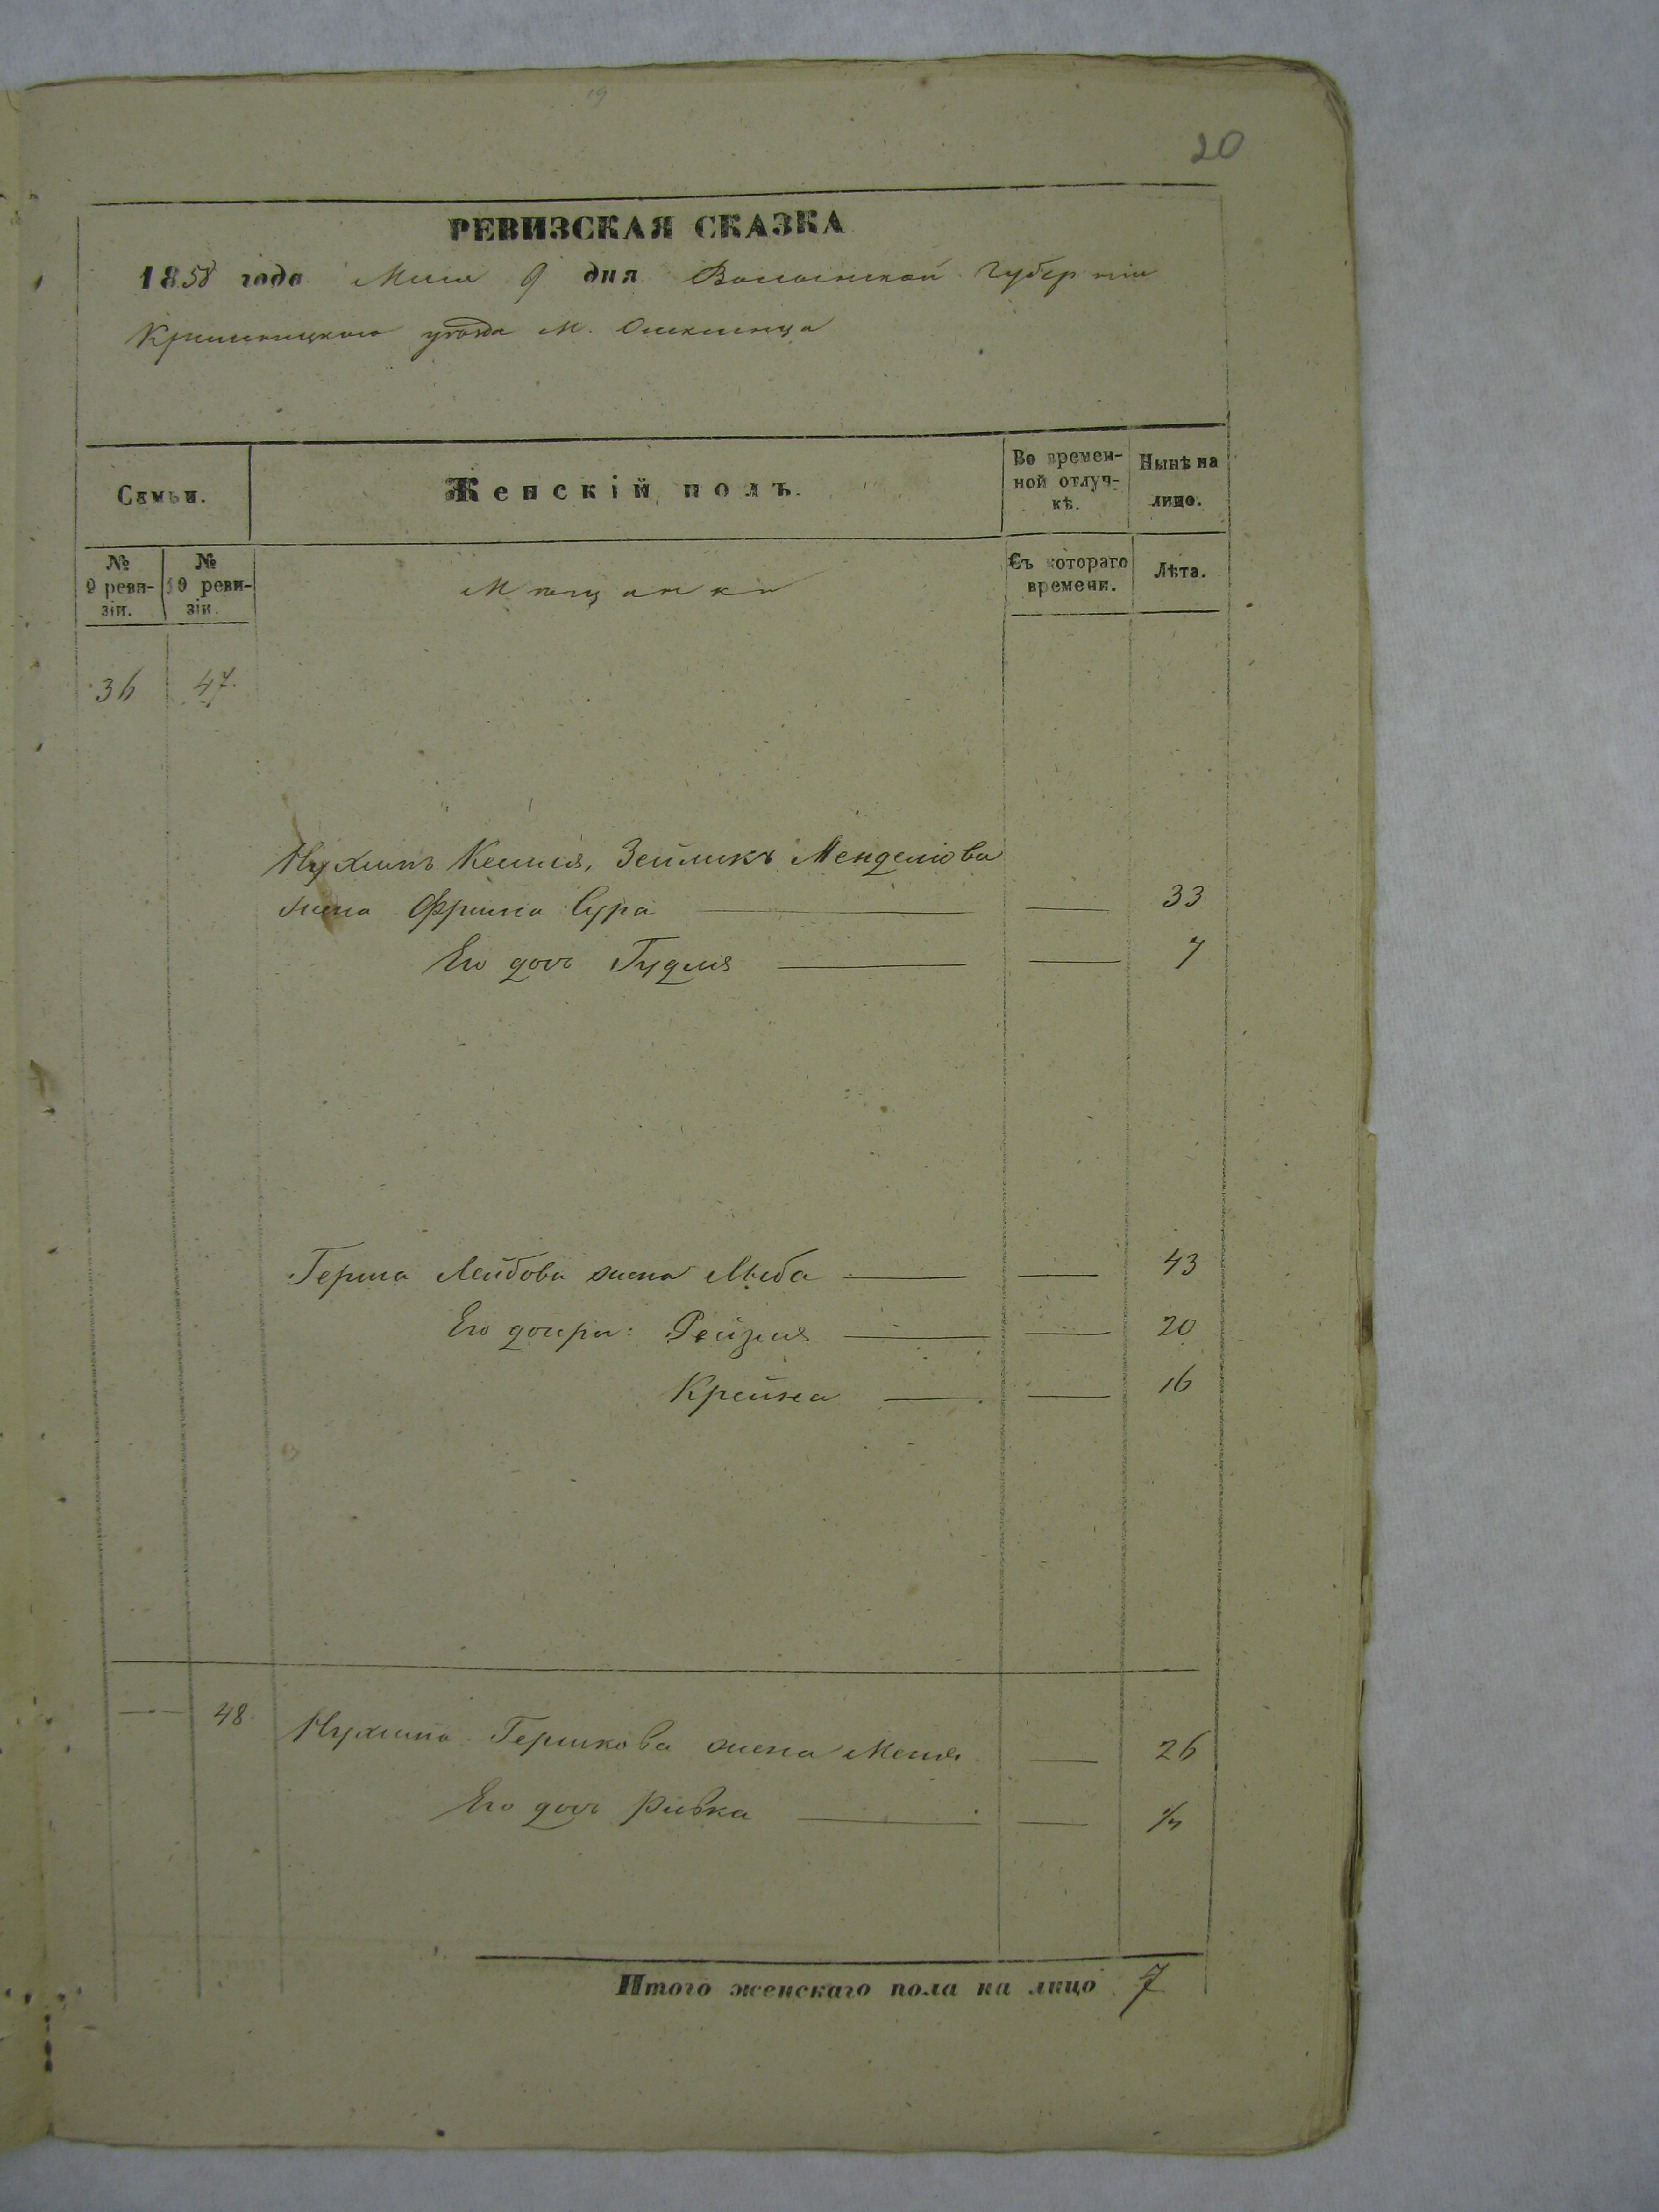 19
20
РЕВИЗСКАЯ СКАЗКА
1858 года Мая 9 дня Волынской губерніи
Кременецкого уѣзда М. Олексинца
Семьи.
Женскій полъ.
Во времен-
ной отлуч-
кѣ.
Нынѣ на
лицо.
№
9 реви-
зіи.
№
10 реви-
зіи.
Мѣщанки
Съ котораго
времени.
Лѣта.
36 47.
Нухимъ Зейликъ Менделіова
жена Фрима Сура 33
Его дочь Гудля 7
Герша Лейбови жена 43
Его дочери: Рейзля 20
Крейна 16
48. Нухима Гершкова жена 26
Его дочь Ривка
Итого женскаго пола на лицо 7